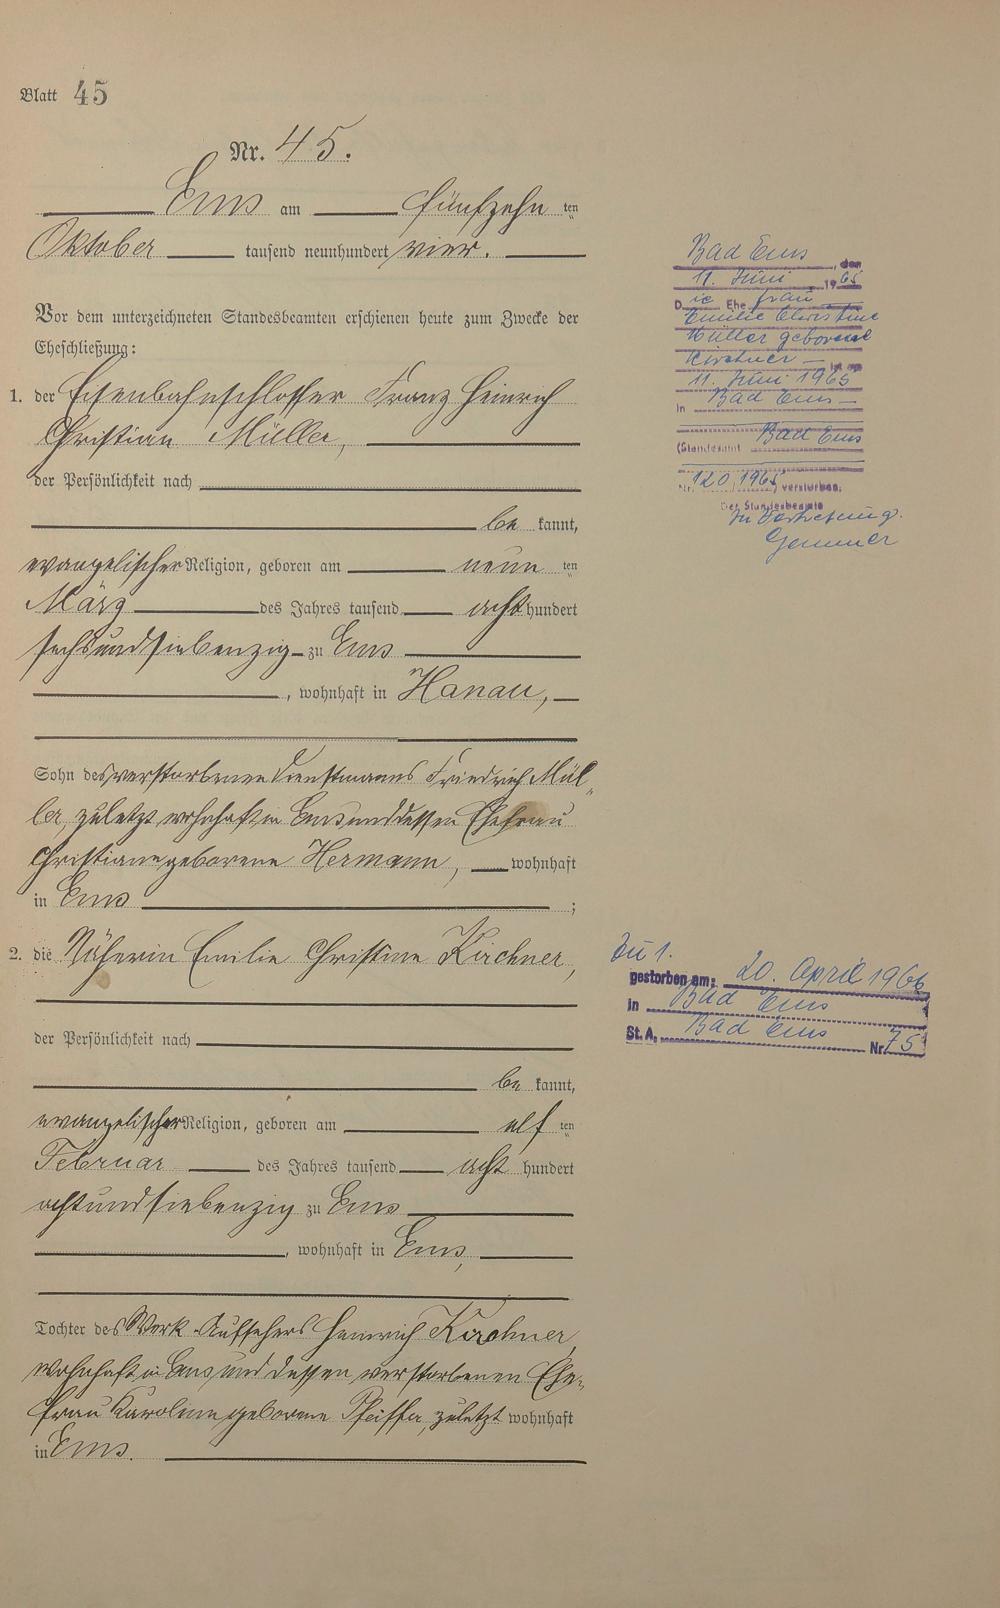 Blatt 45
Nr. 45.
Ems am fünfzehn ten
Oktober tausend neunhundert vier.
Vor dem unterzeichneten Standesbeamten erschienen heute zum Zwecke der
Eheschließung:
1. der Eisenbahnschlosser Franz Heinrich
Christian Müller,
der Persönlichkeit nach
be kannt,
evangelischer Religion, geboren am neun ten
März des Jahres tausend acht hundert
sechsundsiebenzig zu Ems
, wohnhaft in Hanau,
Sohn des verstorbenen Dienstmanns Friedrich Mül-
ler, zuletzt wohnhaft in Ems und dessen Ehefrau
Christiane geborene Hermann, wohnhaft
in Ems ;
2. die Näherin Emilie Christine Kirchner,
der Persönlichkeit nach
be kannt,
evangelischer Religion, geboren am elf ten
Februar des Jahres tausend acht hundert
achtundsiebenzig zu Ems
, wohnhaft in Ems,
Tochter des Werk-Aufsehers Heinrich Kirchner,
wohnhaft in Ems, und dessen verstorbenen Ehe-
frau Karoline geborene Pfeiffer, zuletzt wohnhaft
in Ems.
Bad Ems, den
11. Juni 1965
Die Ehefrau
Emilie Christine
Müller geborene
Kirchner ist am
11. Juni 1965
in Bad Ems
(Standesamt Bad Ems
Nr. 120/1965) verstorben.
Der Standesbeamte
In Vertretung.
Gemmer
Zu 1.
gestorben am: 20. April 1966
in Bad Ems
St. A. Bad Ems Nr. 75